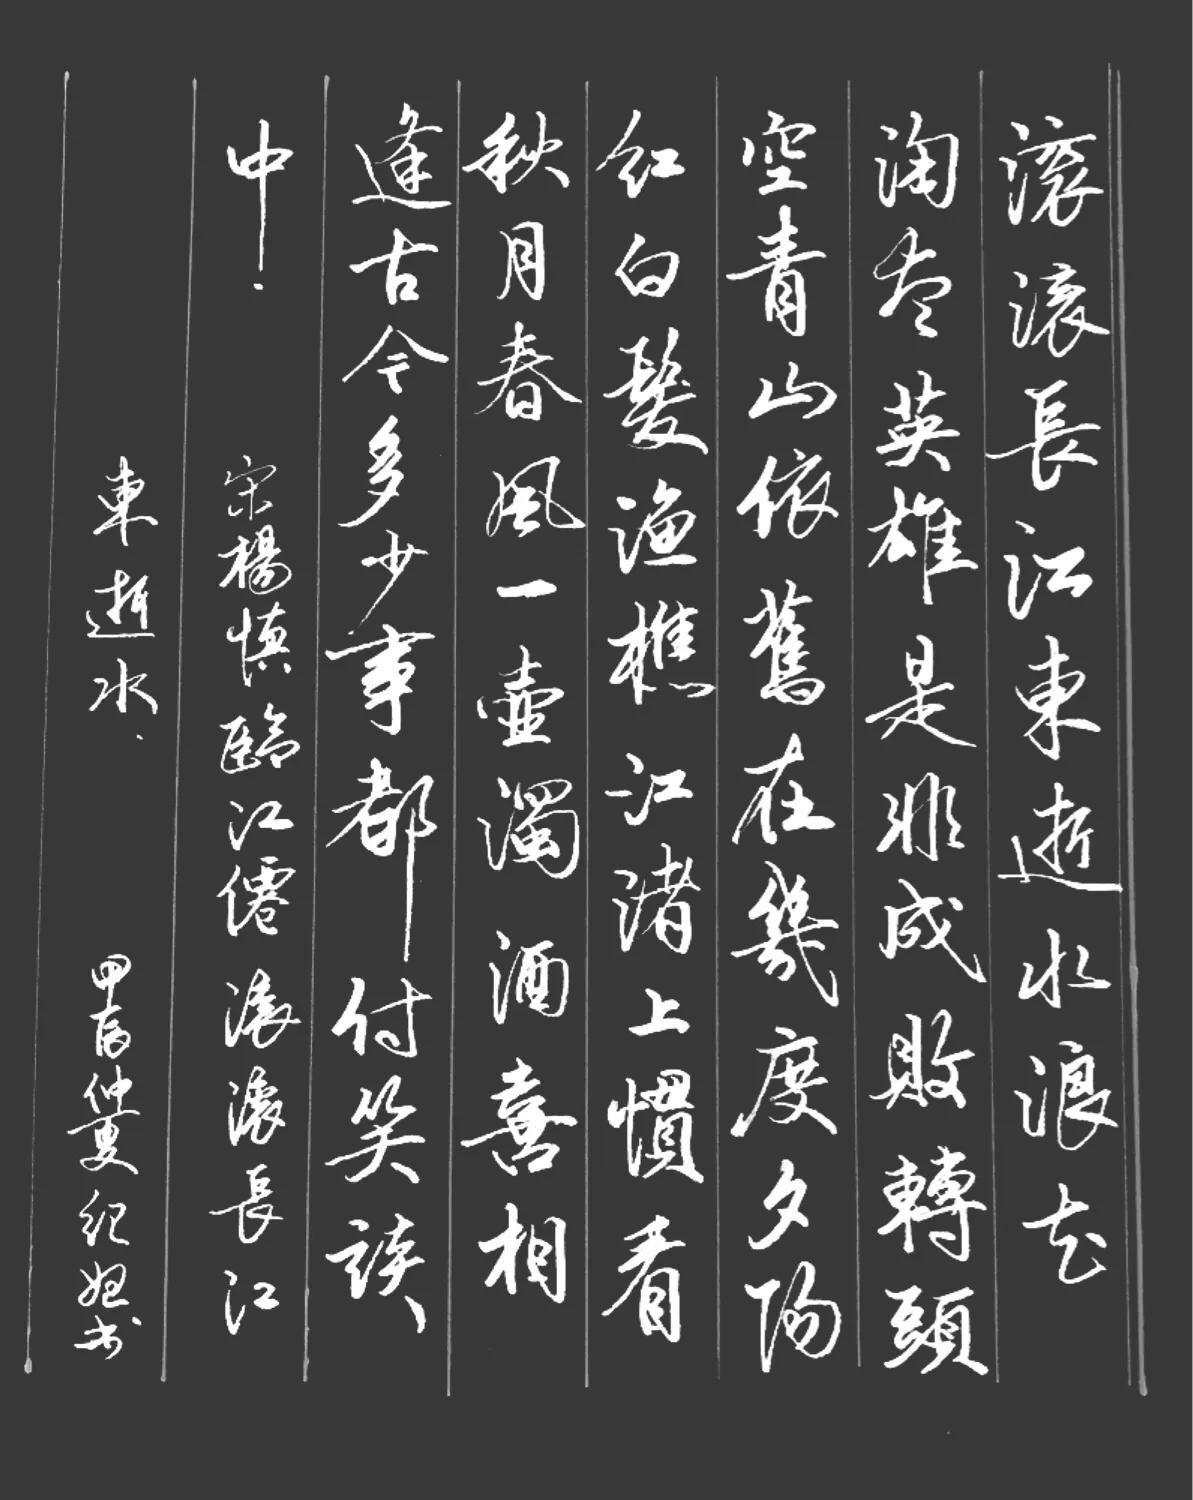 滚滚長江東逝水浪花
淘尽英雄是非成敗轉頭
空青山依舊在幾度夕陽
红白髮渔樵江渚上慣看
秋月春風一壺濁酒喜相
逢古今多少事都付笑談
中.
宋楊慎臨江僊滚滚長江
東逝水.
甲辰仲夏纪
书